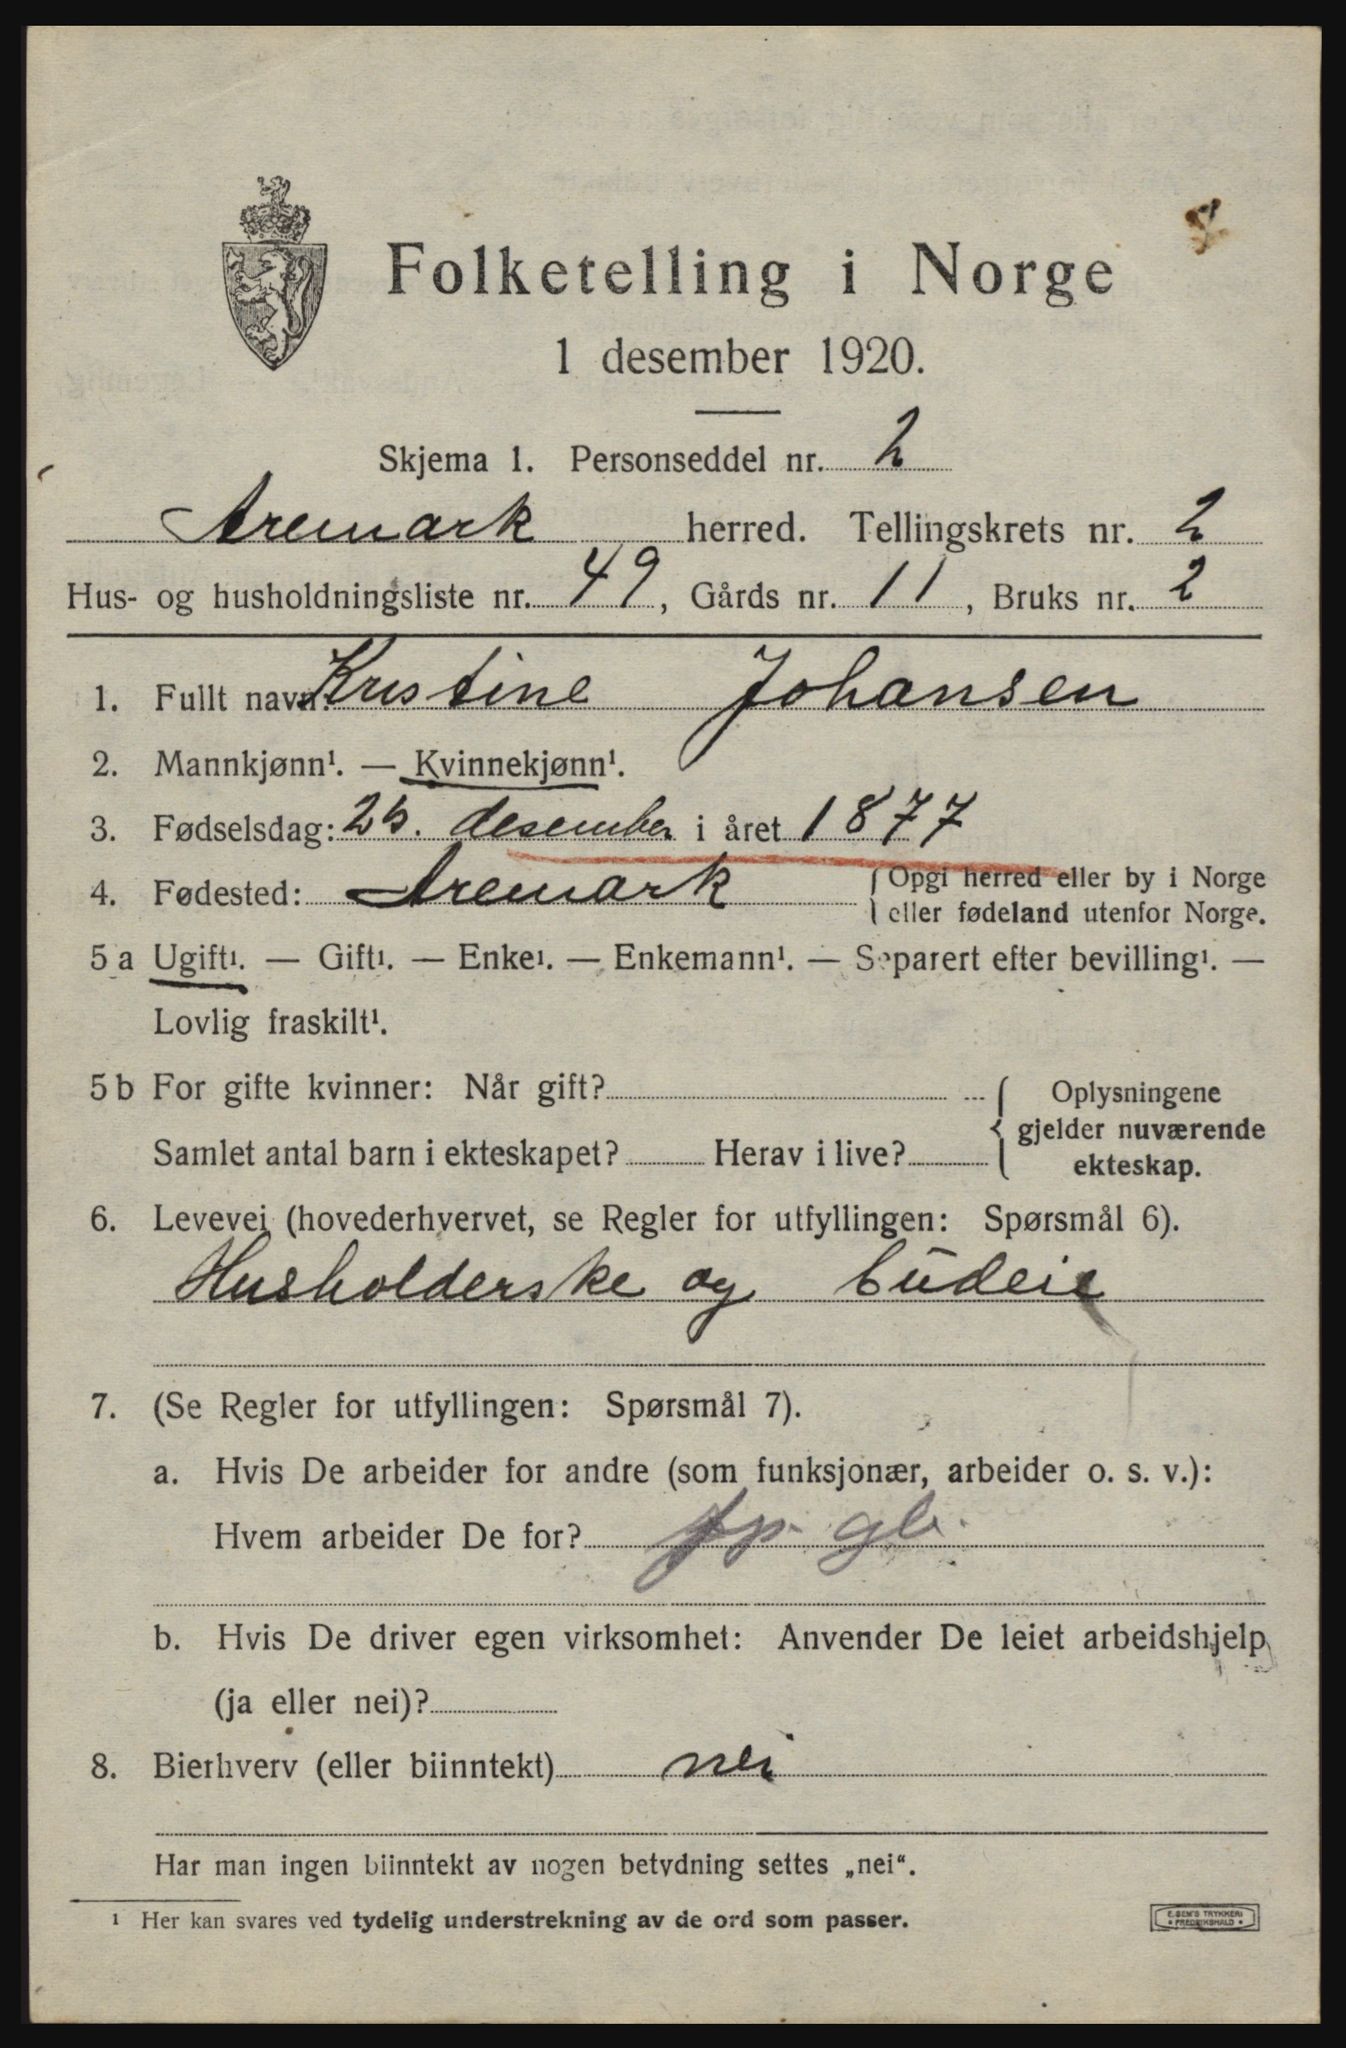 Folketelling i Norge
1 desember 1920.
Skjema 1. Personseddel nr. 2
Aremark herred. Tellingskrets nr. 2
Hus- og husholdningsliste nr. 49, Gårds nr. 11, Bruks nr. 2
1. Fullt navn: Kristine Johansen
2. Mannkjønn¹. — Kvinnekjønn¹.
3. Fødselsdag: desember i året 1877
4. Fødested: Aremark { Opgi herred eller by i Norge
eller fødeland utenfor Norge.
5 a Ugift¹. — Gift¹. — Enke¹. — Enkemann¹. — Separert efter bevilling¹. —
Lovlig fraskilt¹.
5 b For gifte kvinner: Når gift? { Oplysningene
gjelder nuværende
Samlet antal barn i ekteskapet? Herav i live? ekteskap.
6. Levevei (hovederhvervet, se Regler for utfyllingen: Spørsmål 6).
Husholderske og budeie
7. (Se Regler for utfyllingen: Spørsmål 7).
a. Hvis De arbeider for andre (som funksjonær, arbeider o. s. v.):
Hvem arbeider De for?
b. Hvis De driver egen virksomhet: Anvender De leiet arbeidshjelp
(ja eller nei)?
8. Bierhverv (eller biinntekt) nei
Har man ingen biinntekt av nogen betydning settes „nei“.
¹ Her kan svares ved tydelig understrekning av de ord som passer.
E. SEM'S TRYKKERI
• FREDRIKSHALD •